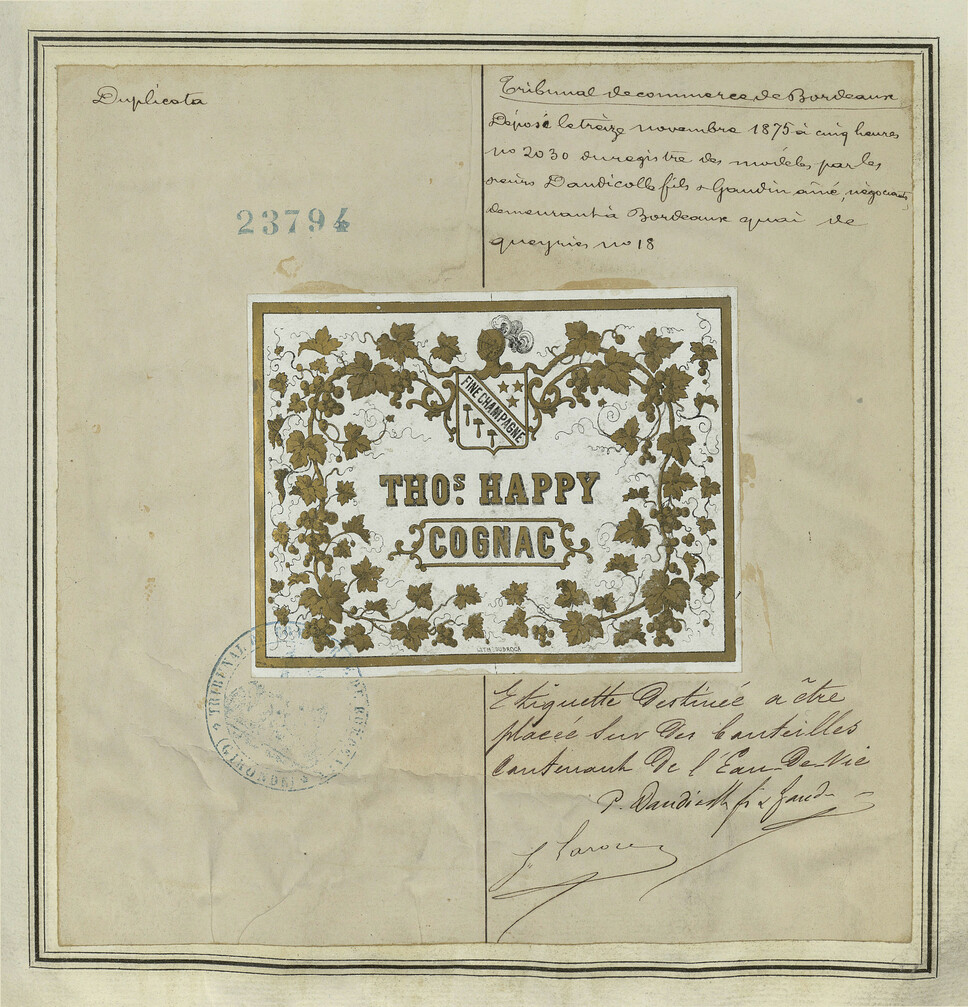 Duplicata
23794
Tribunal de commerce de Bordeaux
Déposé le treize novembre 1875 à cinq heures
no 2030 du registre des modèles par les
sieurs Dandicolle fils & Gaudin aîné, négociants
demeurant à Bordeaux quai de
queyries no 18
FINE CHAMPAGNE
THOS. HAPPY
COGNAC
LITH. DUBROCA
TRIBUNAL DE
(GIRONDE)
Etiquette Destinée a être
placée Sur Des bouteilles
Contenant De l'Eau-De-Vie
P. Dandicolle fs & Gaudin